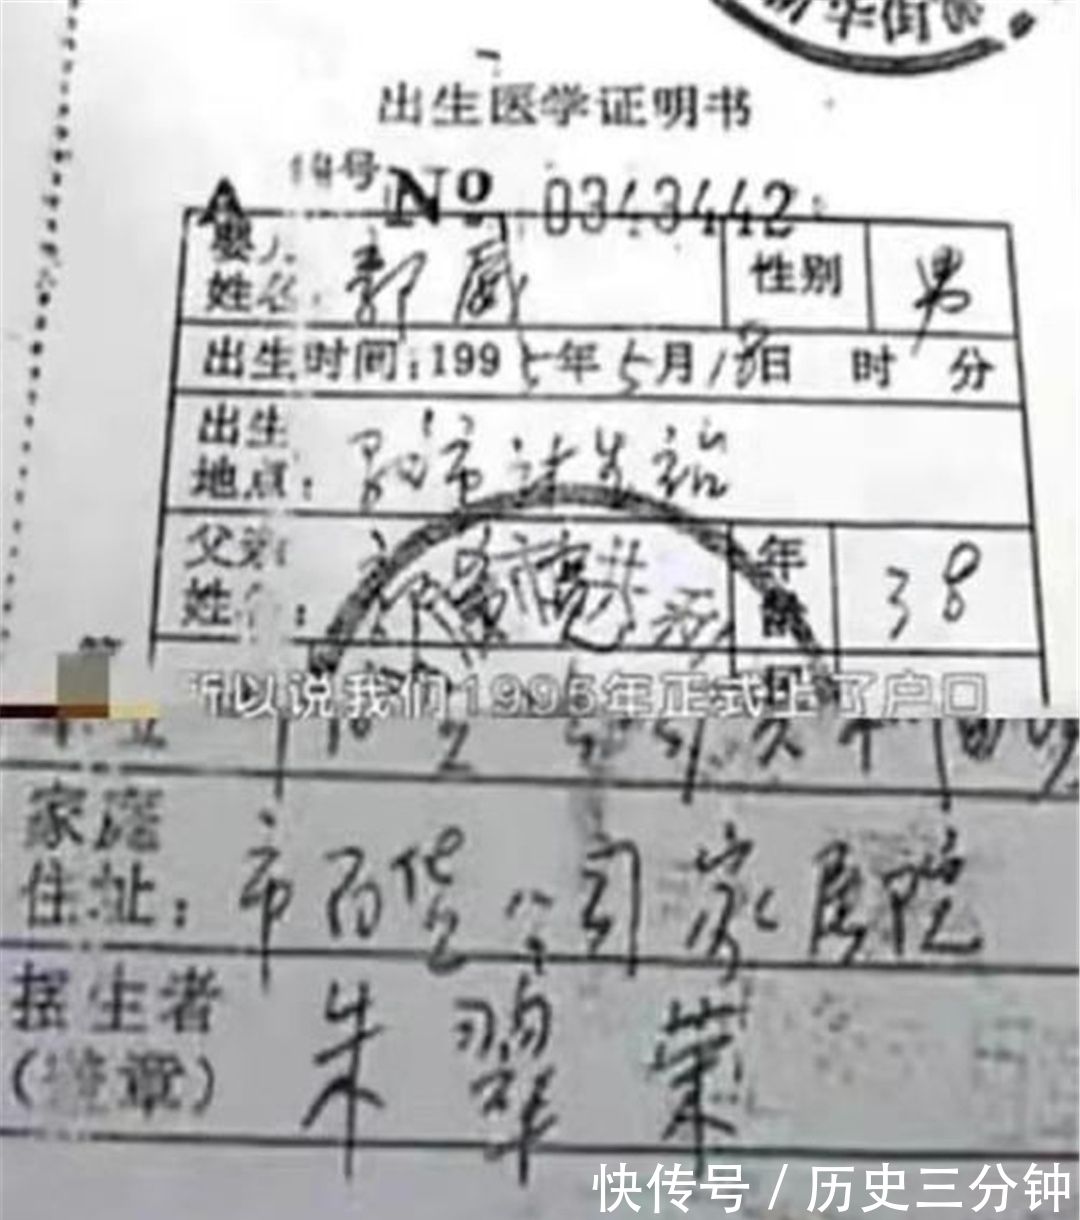 出生医学证明书
编号 No 0343442
婴儿姓名: 郭威 性别 男
出生时间:1995年5月18日 时 分
出生地点:
父亲姓名: 年龄 38
所以说我们1995年正式上了户口
家庭住址: 市百货公司家属院
接生者(签章) 朱翠荣
快传号 / 历史三分钟